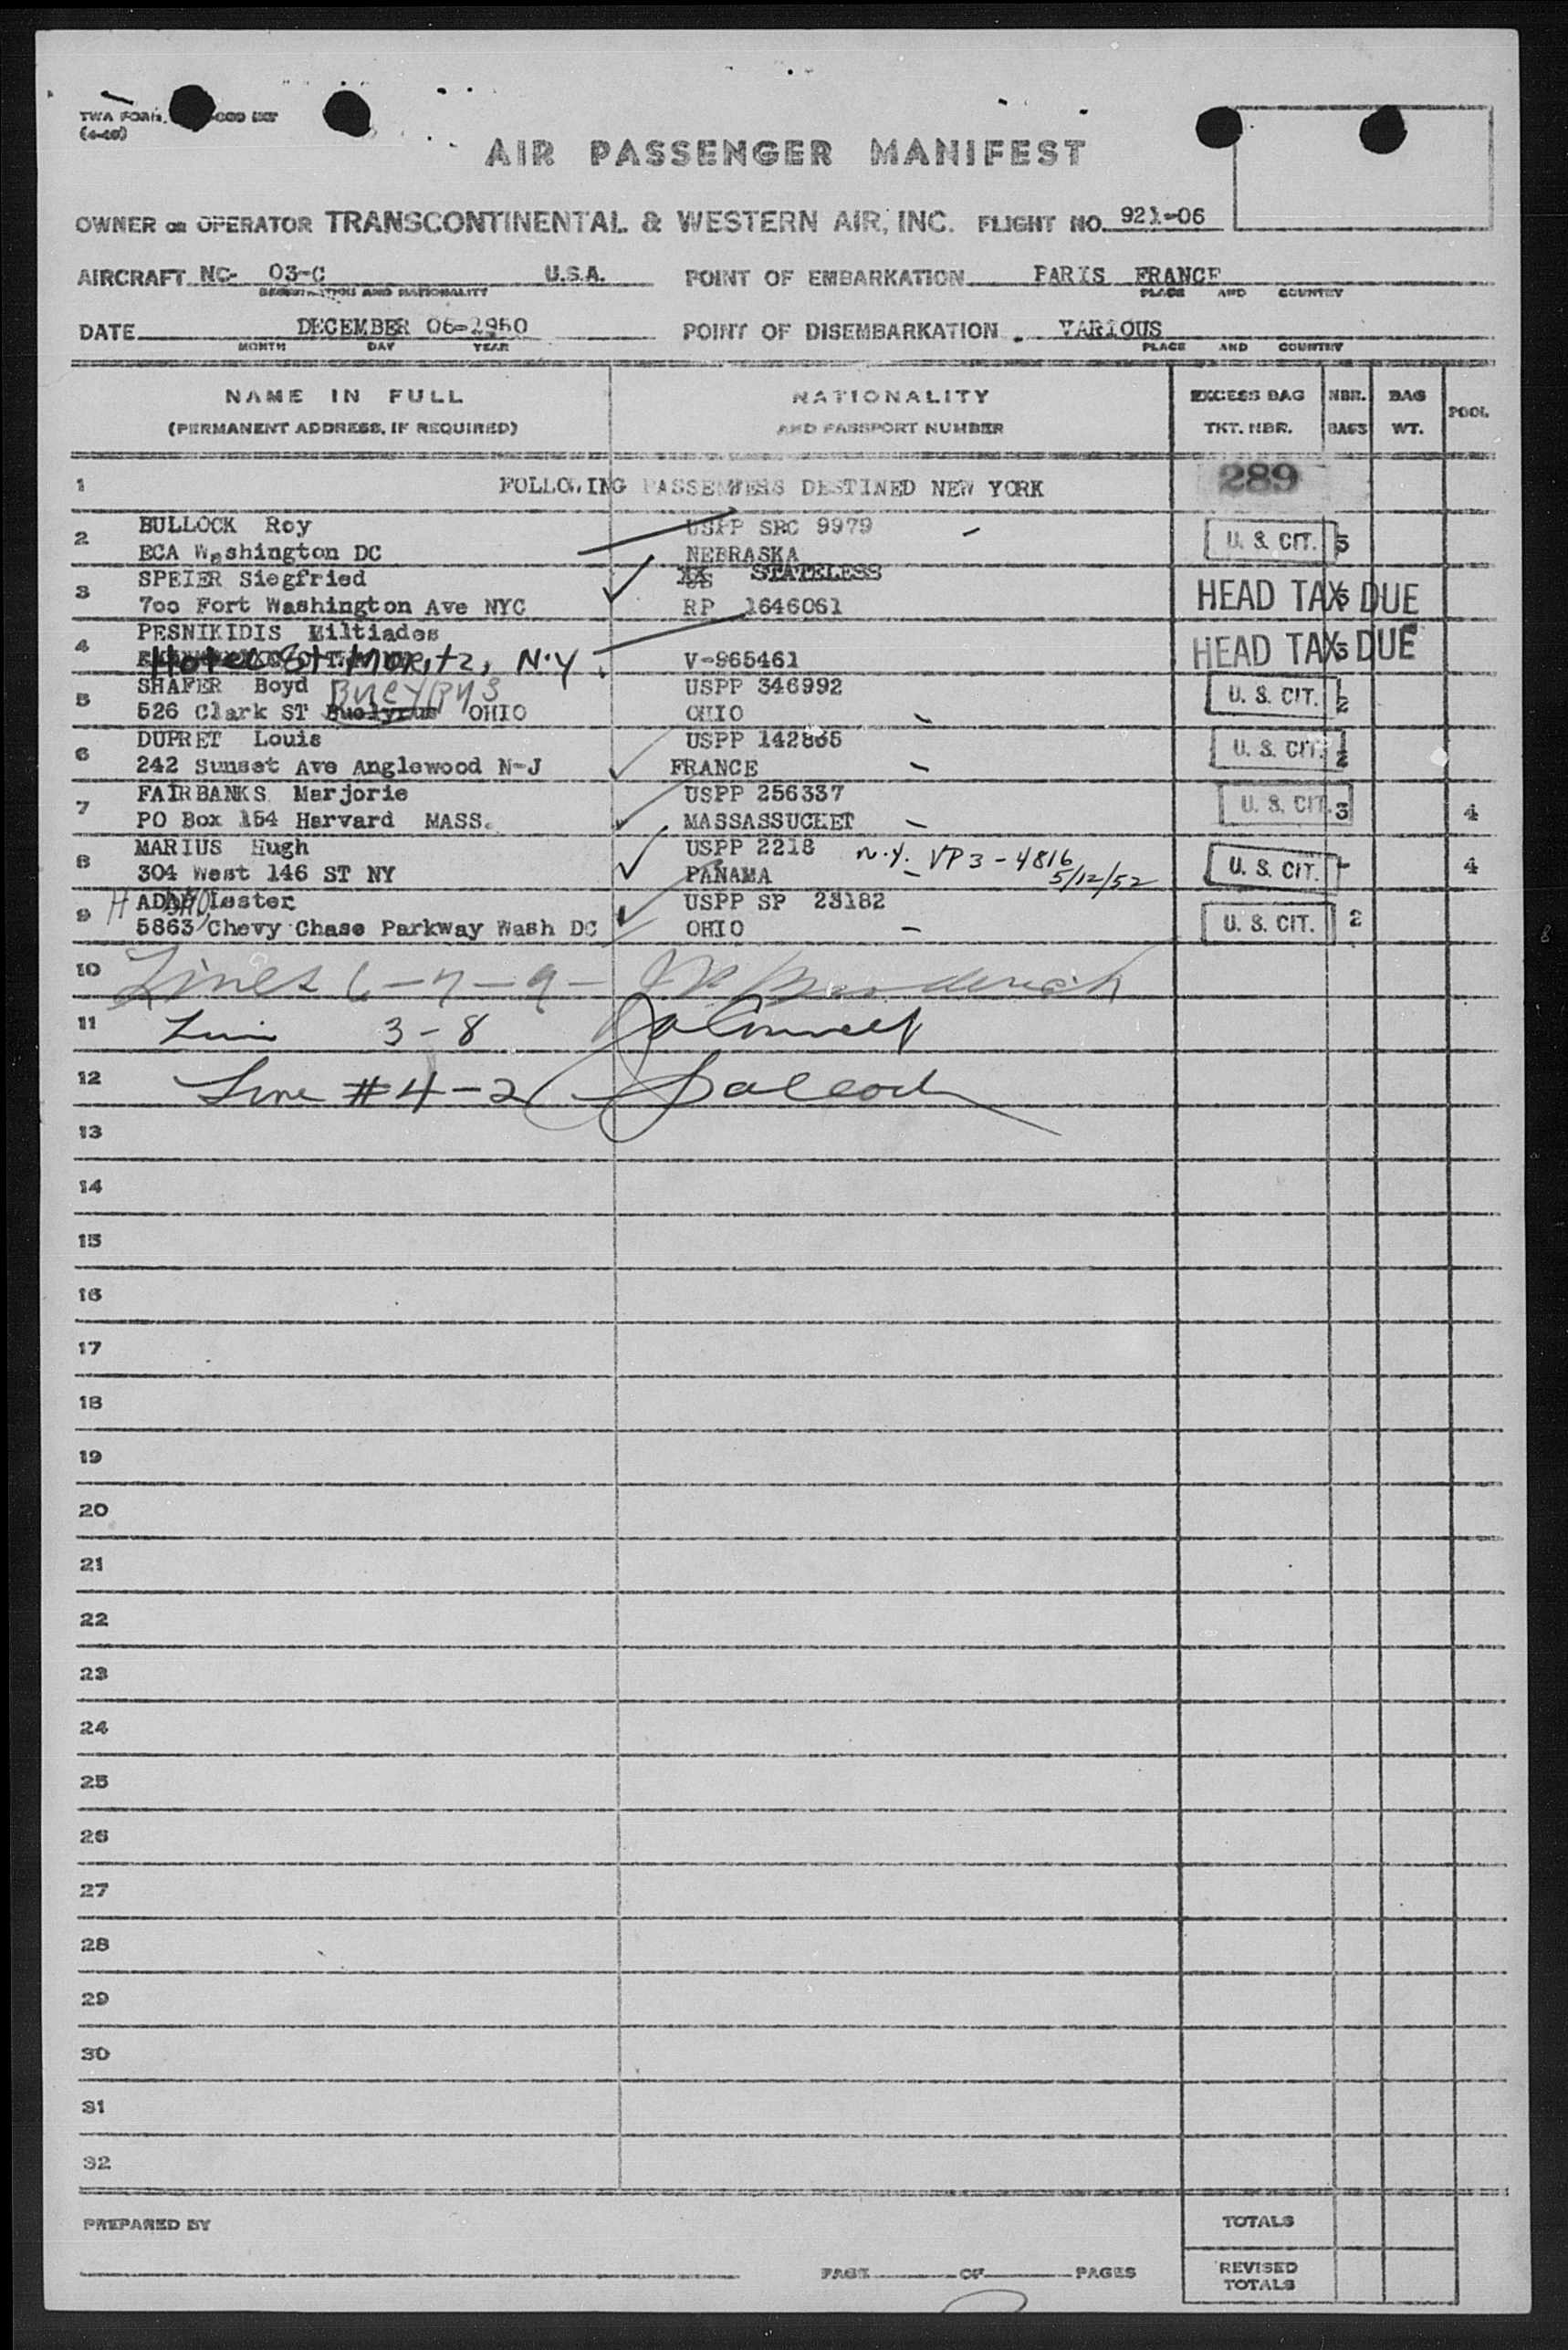 TWA FORM
(4-49)
AIR PASSENGER MANIFEST
OWNER OR OPERATOR TRANSCONTINENTAL & WESTERN AIR, INC. FLIGHT NO. 921-06
AIRCRAFT NC- 03-C U.S.A. POINT OF EMBARKATION PARIS FRANCE
REGISTRATION AND NATIONALITY PLACE AND COUNTRY
DATE DECEMBER 06-1950 POINT OF DISEMBARKATION VARIOUS
MONTH DAY YEAR PLACE AND COUNTRY
NAME IN FULL NATIONALITY EXCESS BAG NBR. BAG POOL
(PERMANENT ADDRESS, IF REQUIRED) AND PASSPORT NUMBER TKT. NBR. BAGS WT.
1 FOLLOWING PASSENWERS DESTINED NEW YORK 289
2 BULLOCK Roy USPP SRC 9979 U. S. CIT. 3
ECA Washington DC NEBRASKA
3 SPEIER Siegfried STATELESS HEAD TAX DUE 5
700 Fort Washington Ave NYC RP 1646061
4 PESNIKIDIS Miltiades HEAD TAX DUE 5
Hotel St. Moritz, N.Y V-965461
5 SHAFER Boyd BUCYRUS USPP 346992 U. S. CIT. 2
526 Clark ST Buclyrus OHIO OHIO
6 DUPRET Louis USPP 142865 U. S. CIT. 2
242 Sunset Ave Anglewood N-J FRANCE
7 FAIRBANKS Marjorie USPP 256337 U. S. CIT. 3 4
PO Box 154 Harvard MASS. MASSASSUCKET
8 MARIUS Hugh USPP 2218 N.Y. VP3-4816 U. S. CIT. - 4
304 West 146 ST NY PANAMA 5/12/52
9 H ADDAD Lester USPP SP 23182 U. S. CIT. 2
5863 Chevy Chase Parkway Wash DC OHIO
10 Lines 6-7-9-
11 Line 3-8
12 Line #4-2
13
14
15
16
17
18
19
20
21
22
23
24
25
26
27
28
29
30
31
32
PREPARED BY TOTALS
PAGE OF PAGES REVISED TOTALS